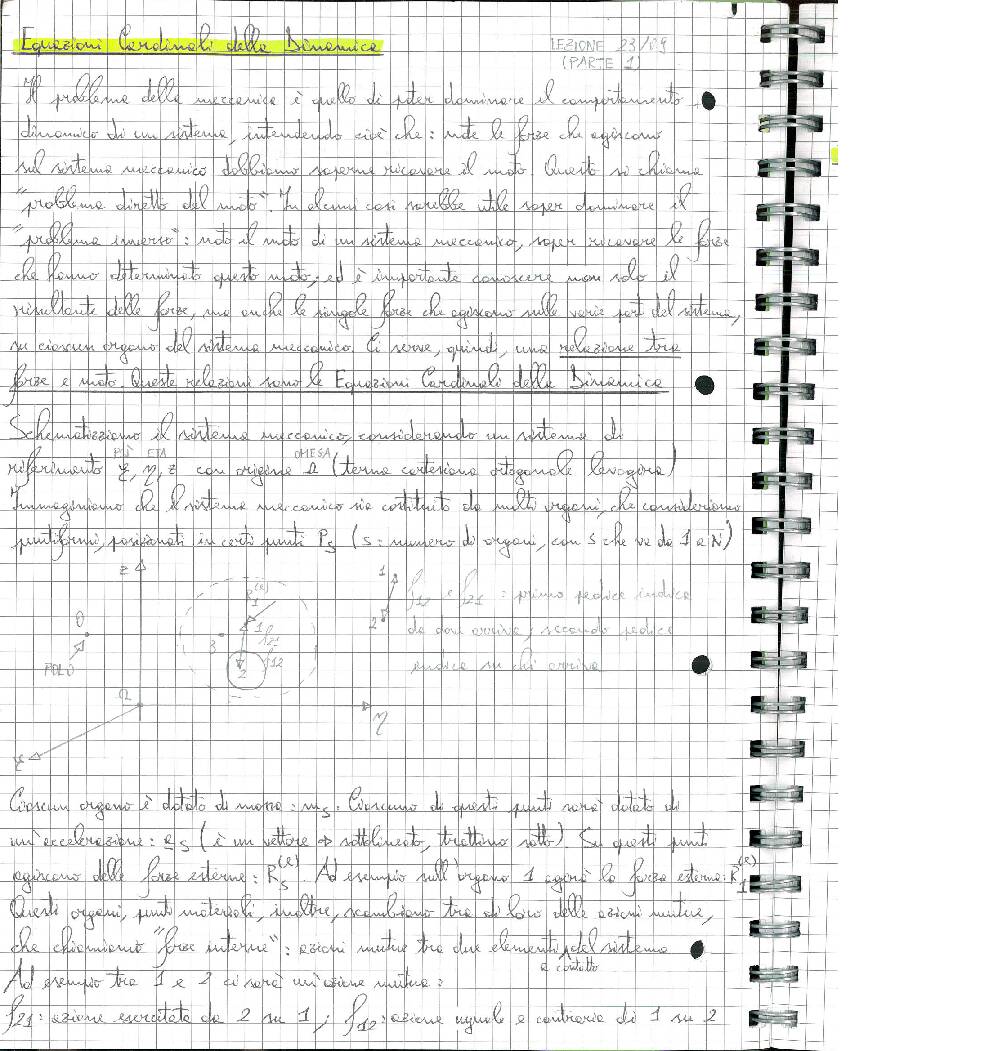 Equazioni Cardinali della Dinamica
LEZIONE 23/09
(PARTE 1)
Il problema della meccanica è quello di poter dominare il comportamento
dinamico di un sistema, intendendo cioè che: note le forze che agiscono
sul sistema meccanico dobbiamo saperne ricavare il moto. Questo si chiama
"problema diretto del moto". In alcuni casi sarebbe utile saper dominare il
"problema inverso": noto il moto di un sistema meccanico, saper ricavare le forze
che hanno determinato questo moto; ed è importante conoscere non solo il
risultante delle forze, ma anche le singole forze che agiscono sulle varie parti del sistema,
su ciascun organo del sistema meccanico. Ci serve, quindi, una relazione tra
forze e moto. Queste relazioni sono le Equazioni Cardinali della Dinamica
Schematizziamo il sistema meccanico, considerando un sistema di
ETA OMEGA
riferimento ξ, η, z con origine Ω (terna cartesiana ortogonale levogira)
Immaginiamo che il sistema meccanico sia costituito da molti organi, che consideriamo
puntiformi, posizionati in certi punti Ps (s: numero di organi, con s che va da 1 a N)
z
O
POLO
Ω
ξ
η
R1(e)
1
3
f21
f12
2
1
2
f12 e f21 : primo pedice indica
da dove arriva, secondo pedice
indica su chi arriva
Ciascun organo è dotato di massa: ms. Ciascuno di questi punti sarà dotato di
un'accelerazione: as (è un vettore → sottolineato, trattino sotto) Su questi punti
agiscono delle forze esterne: Rs(e). Ad esempio sull'organo 1 agirà la forza esterna: R1(e)
Questi organi, punti materiali, inoltre, scambiano tra di loro delle azioni mutue,
che chiamiamo "forze interne": azioni mutue tra due elementi del sistema
a contatto
Ad esempio tra 1 e 2 ci sarà un'azione mutua:
f21: azione esercitata da 2 su 1 ; f12: azione uguale e contraria di 1 su 2